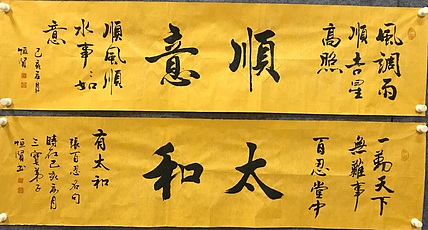 風調雨
順吉星
高照
順意
順風順
水事々如
意
己亥五月
一勤天下
無難事
百忍堂中
太和
有太和
張百忍名句
時在己亥五月
三寶弟子